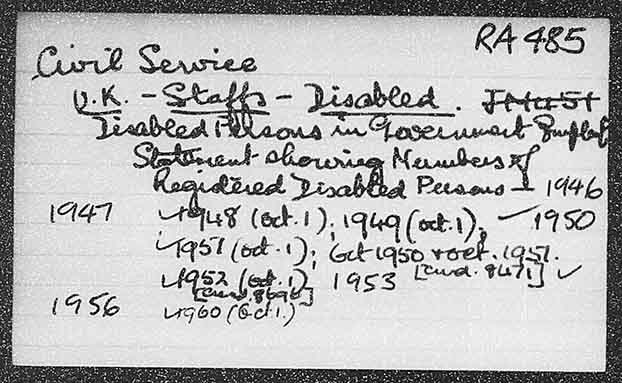 RA 485
Civil Service
U.K. - Staffs - Disabled.
Disabled Persons in Government
Statement showing Numbers of
Registered Disabled Persons - 1946
1947 ✓1948 (Oct. 1); 1949 (Oct. 1); ✓1950
✓1951 (Oct. 1); Oct 1950 & Oct. 1951.
✓1952 (Oct. 1) 1953 [Cmd. 8471] ✓
[Cmd. 8696]
1956 ✓1960 (Oct. 1.)